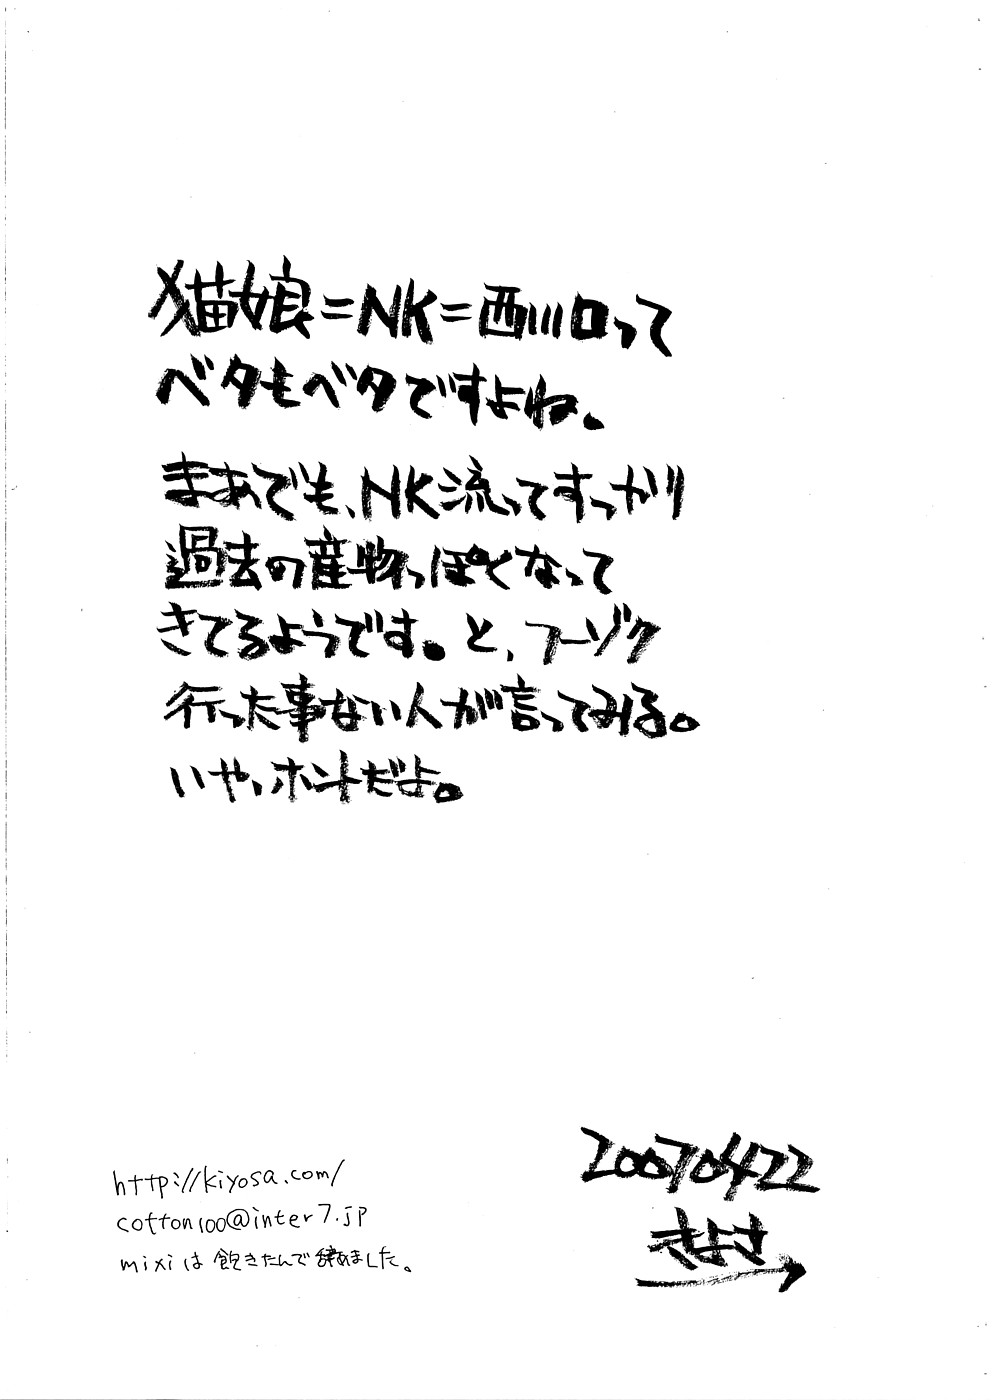 猫娘=NK=西川口って
ベタもベタですよね。
まあでも、NK流ってすっかり
過去の産物っぽくなって
きてるようです。と、フーゾク
行った事ない人が言ってみる。
いや、ホントだよ。
20070422
きよさ
http://kiyosa.com/
cotton100@inter7.jp
mixiは飽きたんで辞めました。